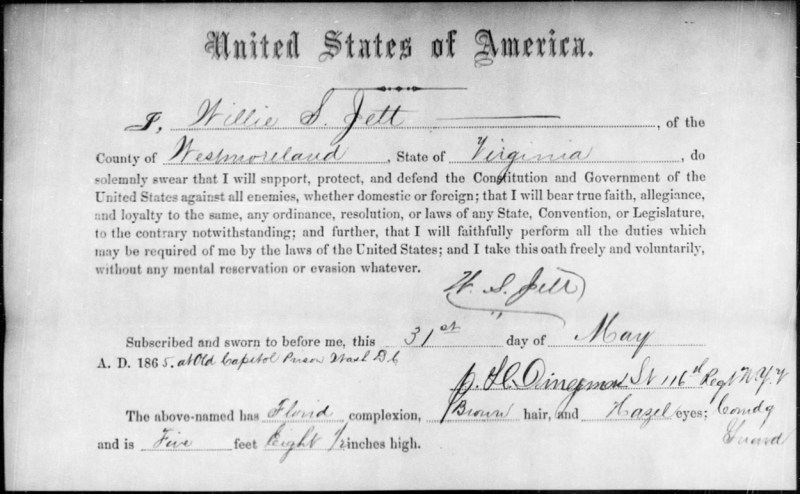 United States of America.
I, Willie S. Jett, of the
County of Westmoreland, State of Virginia, do
solemnly swear that I will support, protect, and defend the Constitution and Government of the
United States against all enemies, whether domestic or foreign; that I will bear true faith, allegiance,
and loyalty to the same, any ordinance, resolution, or laws of any State, Convention, or Legislature,
to the contrary notwithstanding; and further, that I will faithfully perform all the duties which
may be required of me by the laws of the United States; and I take this oath freely and voluntarily,
without any mental reservation or evasion whatever.
W. S. Jett
Subscribed and sworn to before me, this 31st day of May
A. D. 1865. at Old Capitol Prison Wash D C
116th Regt N. Y. V
The above-named has Florid complexion, Brown hair, and Hazel eyes; Comdg
Guard
and is Five feet Eight 1/2 inches high.